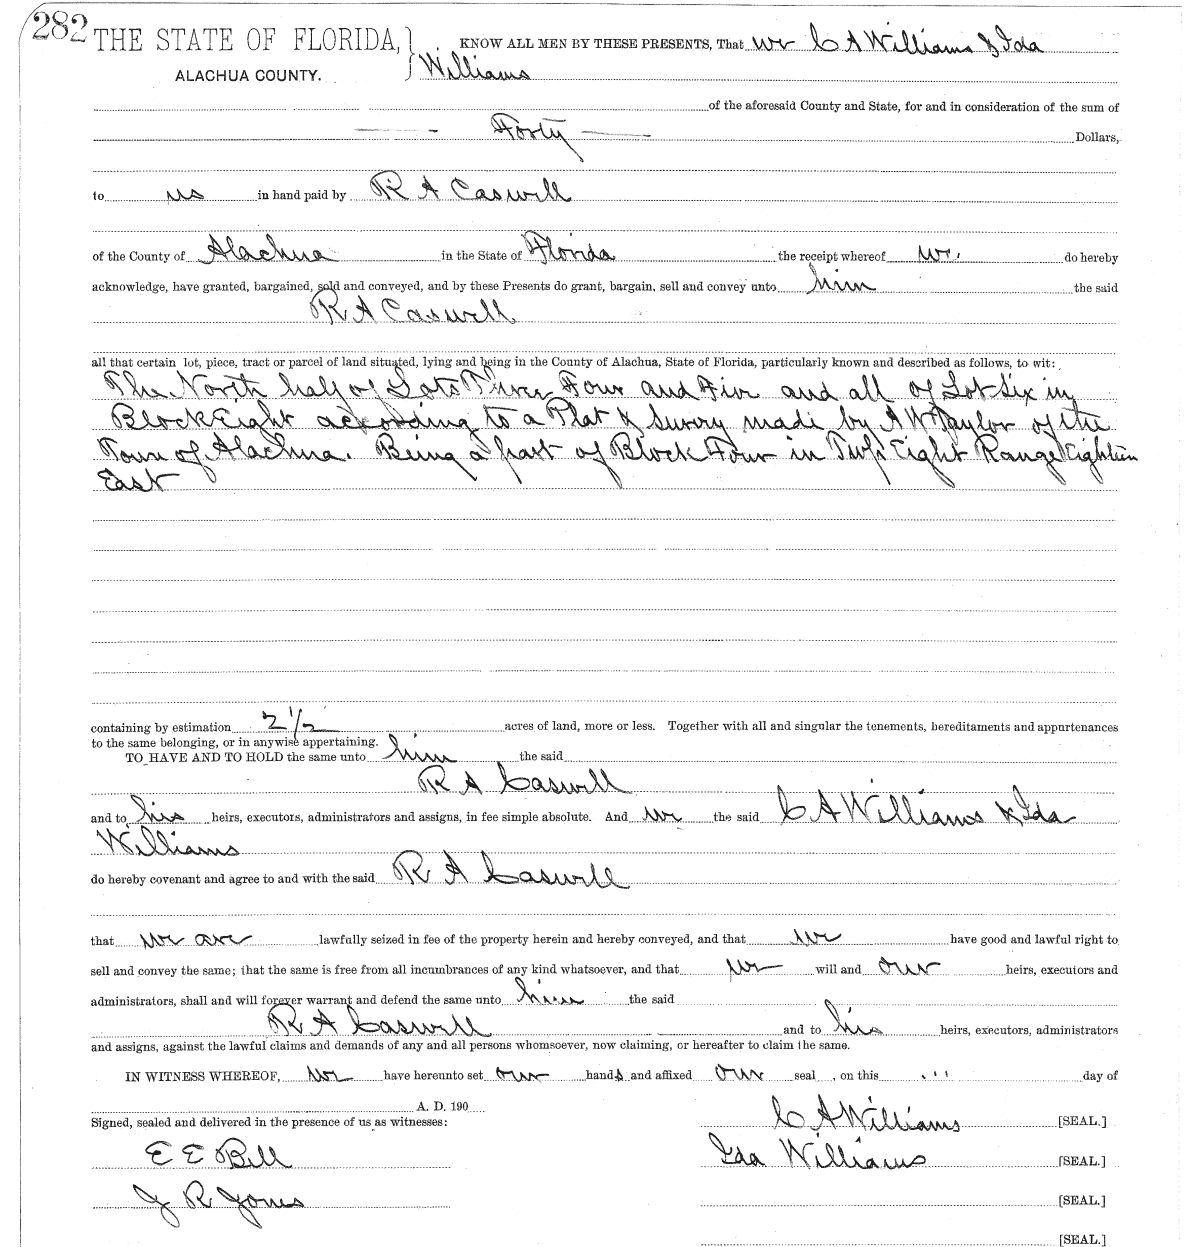 282
THE STATE OF FLORIDA,
ALACHUA COUNTY.
KNOW ALL MEN BY THESE PRESENTS, That we C A Williams & Ida
Williams
of the aforesaid County and State, for and in consideration of the sum of
Forty Dollars,
to us in hand paid by R A Caswell
of the County of Alachua in the State of Florida the receipt whereof we do hereby
acknowledge, have granted, bargained, sold and conveyed, and by these Presents do grant, bargain, sell and convey unto him the said
R A Caswell
all that certain lot, piece, tract or parcel of land situated, lying and being in the County of Alachua, State of Florida, particularly known and described as follows, to wit:
The North half of Lots Three Four and Five and all of Lot Six in
Block Eight according to a Plat & Survey made by A W Taylor of the
Town of Alachua. Being a part of Block Four in Twp Eight Range Eighteen
East
containing by estimation 2 1/2 acres of land, more or less. Together with all and singular the tenements, hereditaments and appurtenances
to the same belonging, or in anywise appertaining.
TO HAVE AND TO HOLD the same unto him the said
R A Caswell
and to his heirs, executors, administrators and assigns, in fee simple absolute. And we the said C A Williams & Ida
Williams
do hereby covenant and agree to and with the said R A Caswell
that we are lawfully seized in fee of the property herein and hereby conveyed, and that we have good and lawful right to
sell and convey the same; that the same is free from all incumbrances of any kind whatsoever, and that we will and our heirs, executors and
administrators, shall and will forever warrant and defend the same unto him the said
R A Caswell and to his heirs, executors, administrators
and assigns, against the lawful claims and demands of any and all persons whomsoever, now claiming, or hereafter to claim the same.
IN WITNESS WHEREOF, we have hereunto set our hands and affixed our seal, on this day of
A. D. 190
Signed, sealed and delivered in the presence of us as witnesses:
C A Williams [SEAL.]
E E Bell
Ida Williams [SEAL.]
J R Jones
[SEAL.]
[SEAL.]